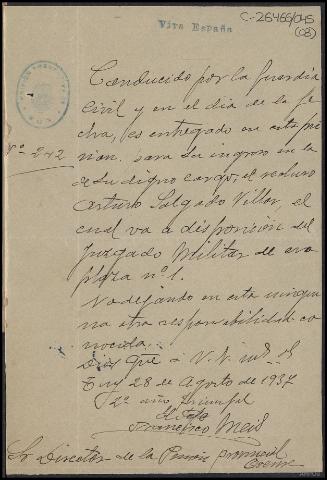 C-26466/045
(08)
Viva España
Conducido por la Guardia
Civil y en el dia de la fe
cha, es entregado en esta pri
sion para su ingreso en la
Nº 242
de su digno cargo, el recluso
Arturo Salgado Villar, el
cual va a disposición del
Juzgado Militar de esa
plaza nº 1.
No dejando en esta ningu
na otra responsabilidad co
nocida.
Dios gue a V.
Tuy 28 de Agosto de 1937
2º año triunfal
El Jefe
Francisco
Sr Director de la Prisión provincial
Orense